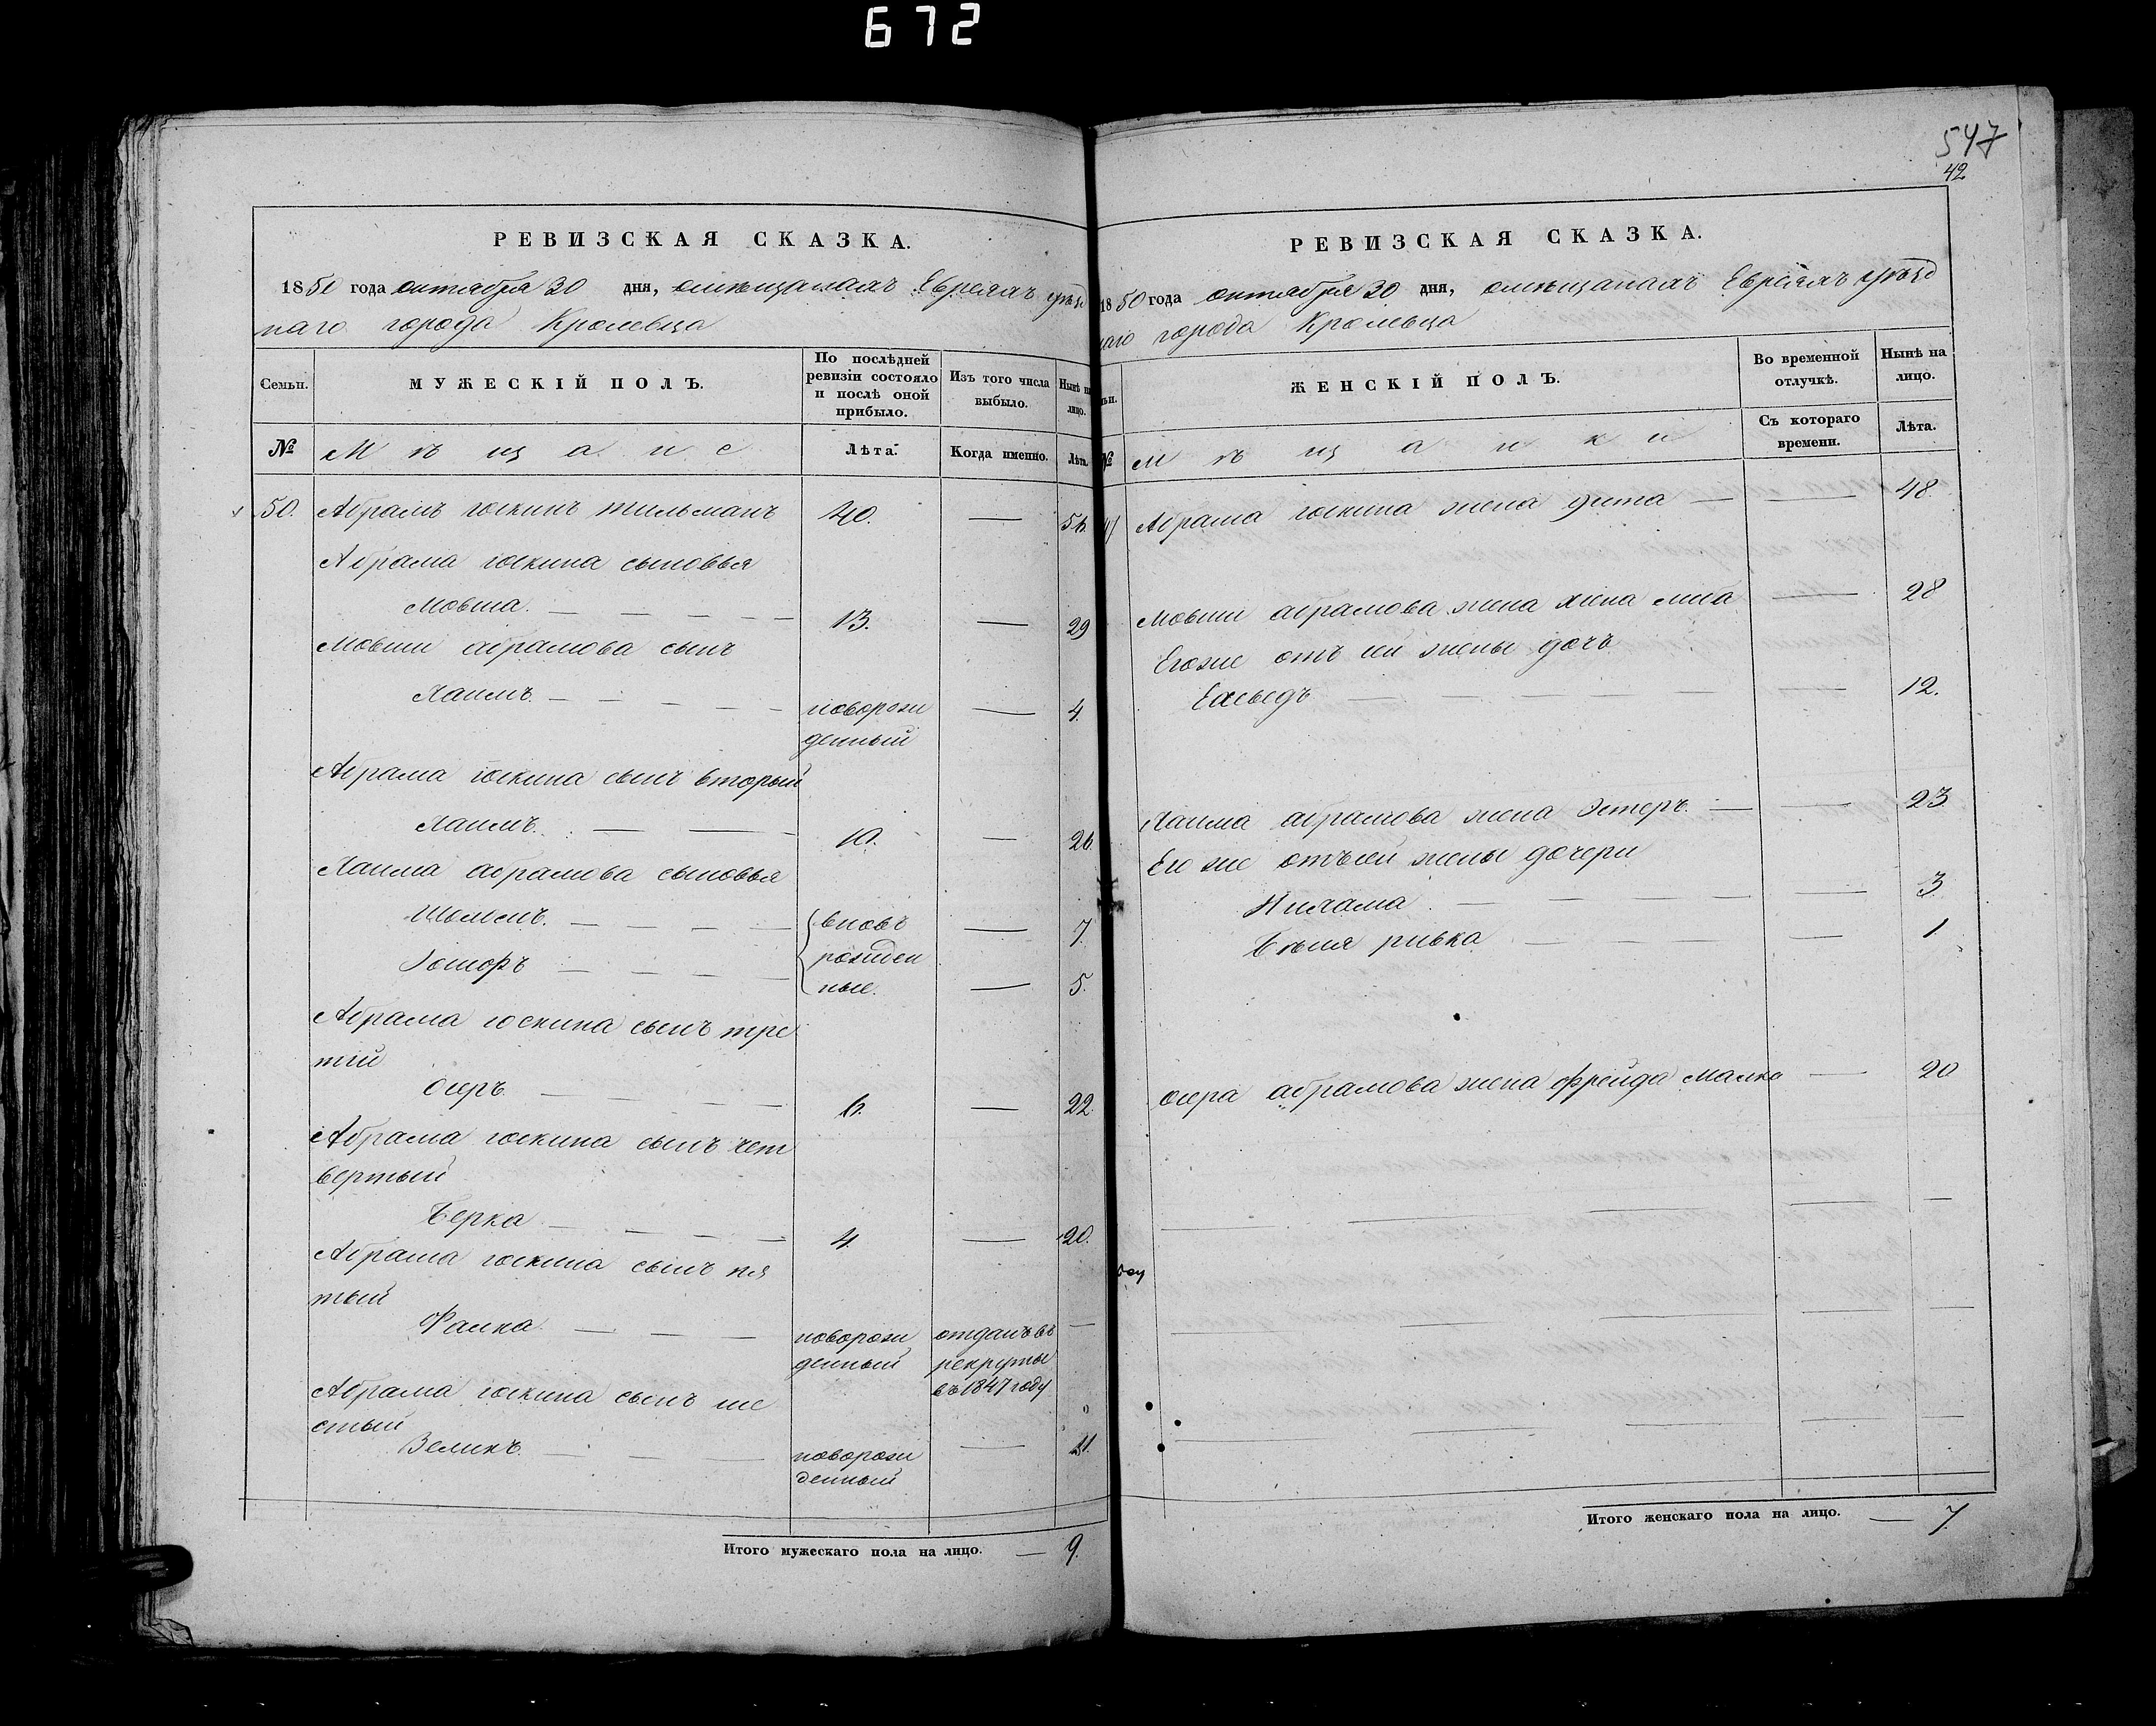 672
РЕВИЗСКАЯ СКАЗКА.
1850 года октября 30 дня, омѣщанахъ Евреяхъ уѣзд
наго города Кролевца
Семьи.
МУЖЕСКІЙ ПОЛЪ.
По послѣдней ревизіи состояло и послѣ оной прибыло.
Изъ того числа выбыло.
Нынѣ на лицо.
№
Мѣщане
Лѣта.
Когда именно.
Лѣта.
50. Абрамъ Іоскинъ Тильманъ 40. — 56.
Абрама Іоскина сыновья
Мовша. — 13. — 29
Мовши Абрамова сынъ
Хаимъ — новорож — 4.
денный
Абрама Іоскина сынъ вторый
Хаимъ. — 10. — 26.
Хаима Абрамова сыновья
Шолемъ. — вновь — 7.
рожден
Іошофъ — ные. — 5.
Абрама Іоскина сынъ тре
тій
Осеръ — 6. — 22.
Абрама Іоскина сынъ чет
вертый
Берка — 4. — 20.
Абрама Іоскина сынъ пя
тый
Фалка — новорож отданъ въ —
денный рекруты
въ 1847 году
Абрама Іоскина сынъ ше
стый
Зеликъ. — новорож —
денный
Итого мужескаго пола на лицо. — 9.
547
42
РЕВИЗСКАЯ СКАЗКА.
1850 года октября 30 дня, омѣщанахъ Евреяхъ уѣзд
наго города Кролевца
ЖЕНСКІЙ ПОЛЪ.
Во временной отлучкѣ.
Нынѣ на лицо.
№
Мѣщанки
Съ котораго времени.
Лѣта.
Абрама Іоскина жена Гита — — 48.
Мовши Абрамова жена Хина — 28
Егоже отъ сей жены дочь
— — 12.
Хаима Абрамова жена Эстеръ. — — 23
Его же отъ сей жены дочери
Нихама. — — 3.
Бѣля Ривка — — 1
Осера Абрамова жена Фрейда Малка — 20
Итого женскаго пола на лицо. — 7.